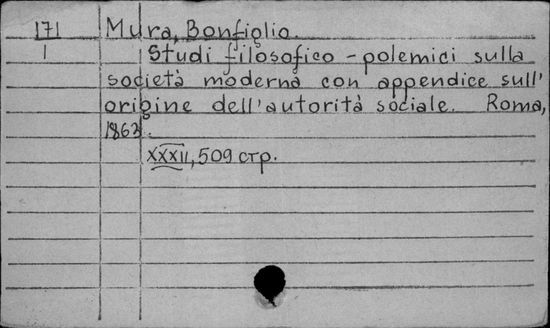 171 Mura, Bonfiglio.
1 Studi filosofico - polemici sulla
società moderna con appendice sull'
origine dell'autorità sociale. Roma,
1863.
XXXII, 509 стр.